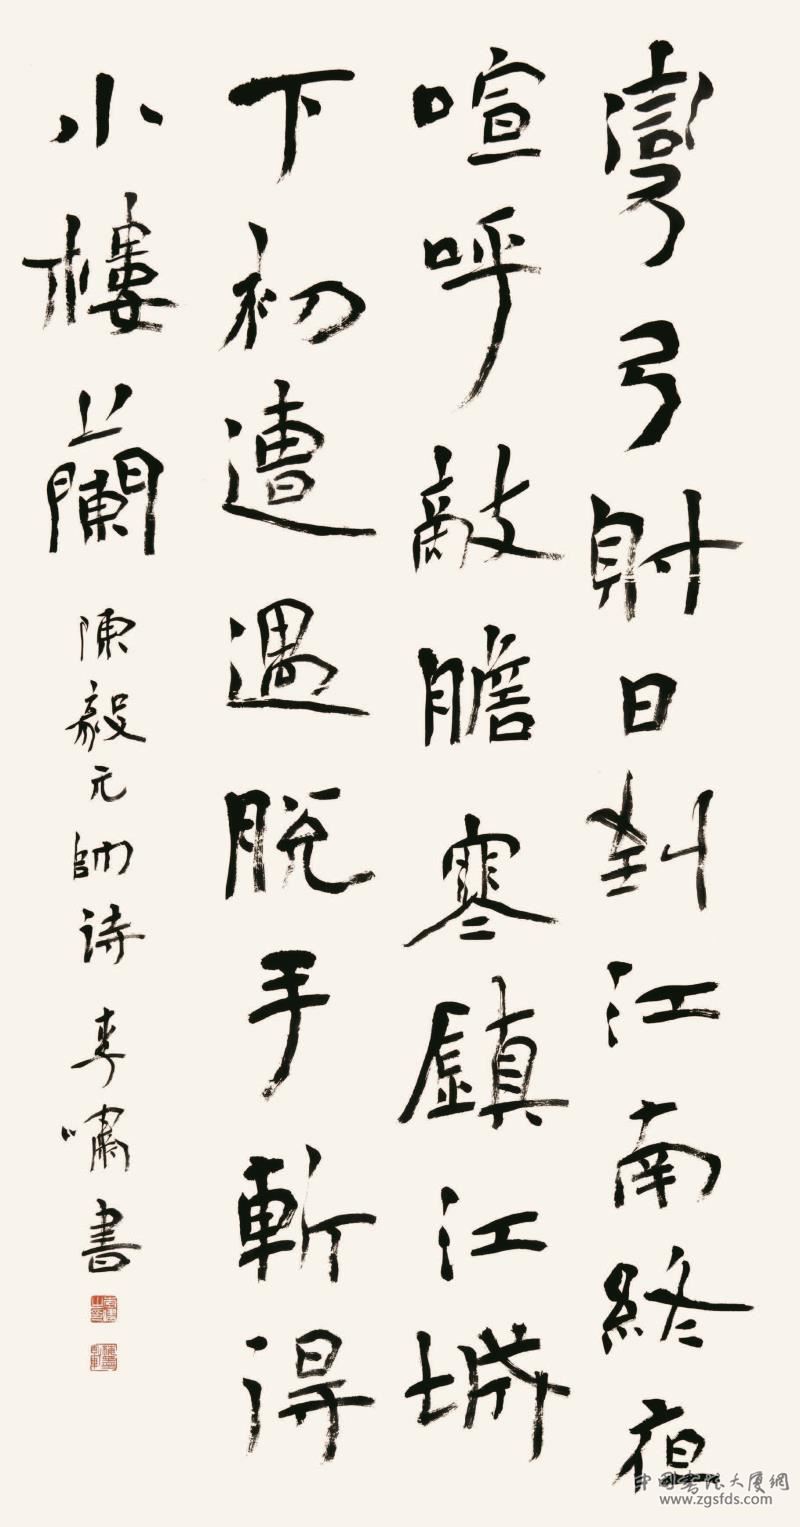 彎弓射日到江南終夜
喧呼敵膽寒鎮江城
下初遭遇脫手斬得
小樓蘭 陳毅元帥诗 李嘯書
中国書法大廈網
www.zgsfds.com